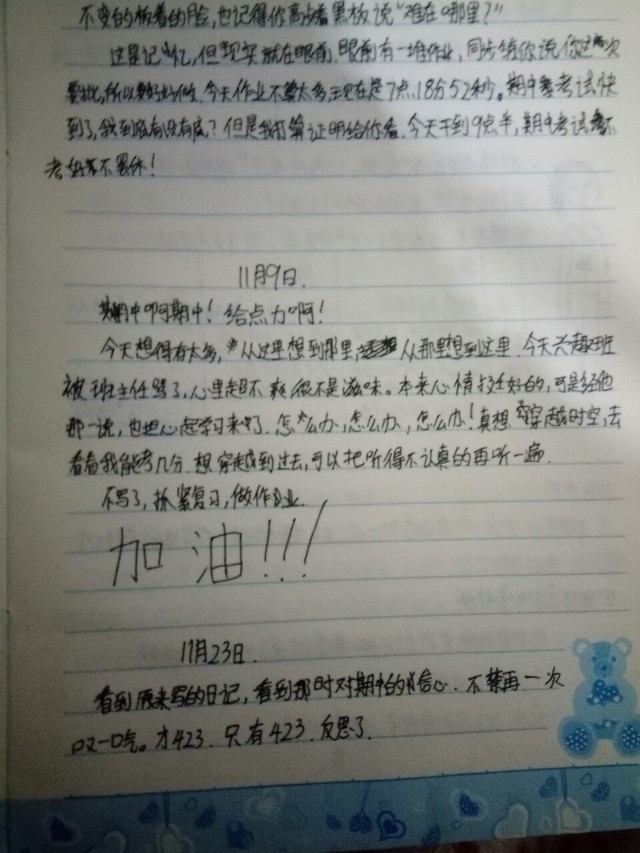 不变的板着的脸，也记得你高占着黑板说"难在哪里？"
这是记忆，但现实就在眼前，眼前有一堆作业，同步练你说你这次
要批，所以要好好做。今天作业不算太多，现在是7点18分52秒。期中考试快
到了，我到底有没有底？但是我打算证明给你看。今天干到9点半，期中考试
考好不罢休！
11月9日.
期中啊期中！给点力啊！
今天想得有太多，从这里想到那里，从那里想到这里。今天兴趣班
被班主任骂了，心里起不爽，很不是滋味。本来心情挺好的，可是经他
那一说，也担心起学习来了。怎么办，怎么办，怎么办！真想穿越时空，去
看看我能考几分。想穿越到过去，可以把听得不认真的再听一遍.
不写了，抓紧复习，做作业.
加油！！！
11月23日.
看到原来写的日记，看到那时对期中的信心. 不禁再一次
叹一口气。才423. 只有423. 反思了.